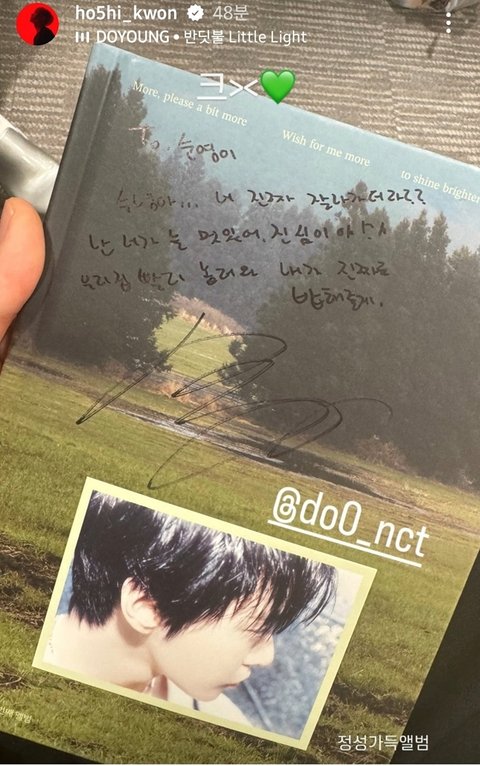 ho5hi_kwon 48분
DOYOUNG • 반딧불 Little Light
크><💚
More, please a bit more
Wish for me more
to shine brighter
To. 순영이
너 진짜 잘나가더라
난 너가 늘 멋있어. 진심이야
우리집 빨리 놀러와 내가 진짜로
밥해줄게.
@do0_nct
정성가득앨범